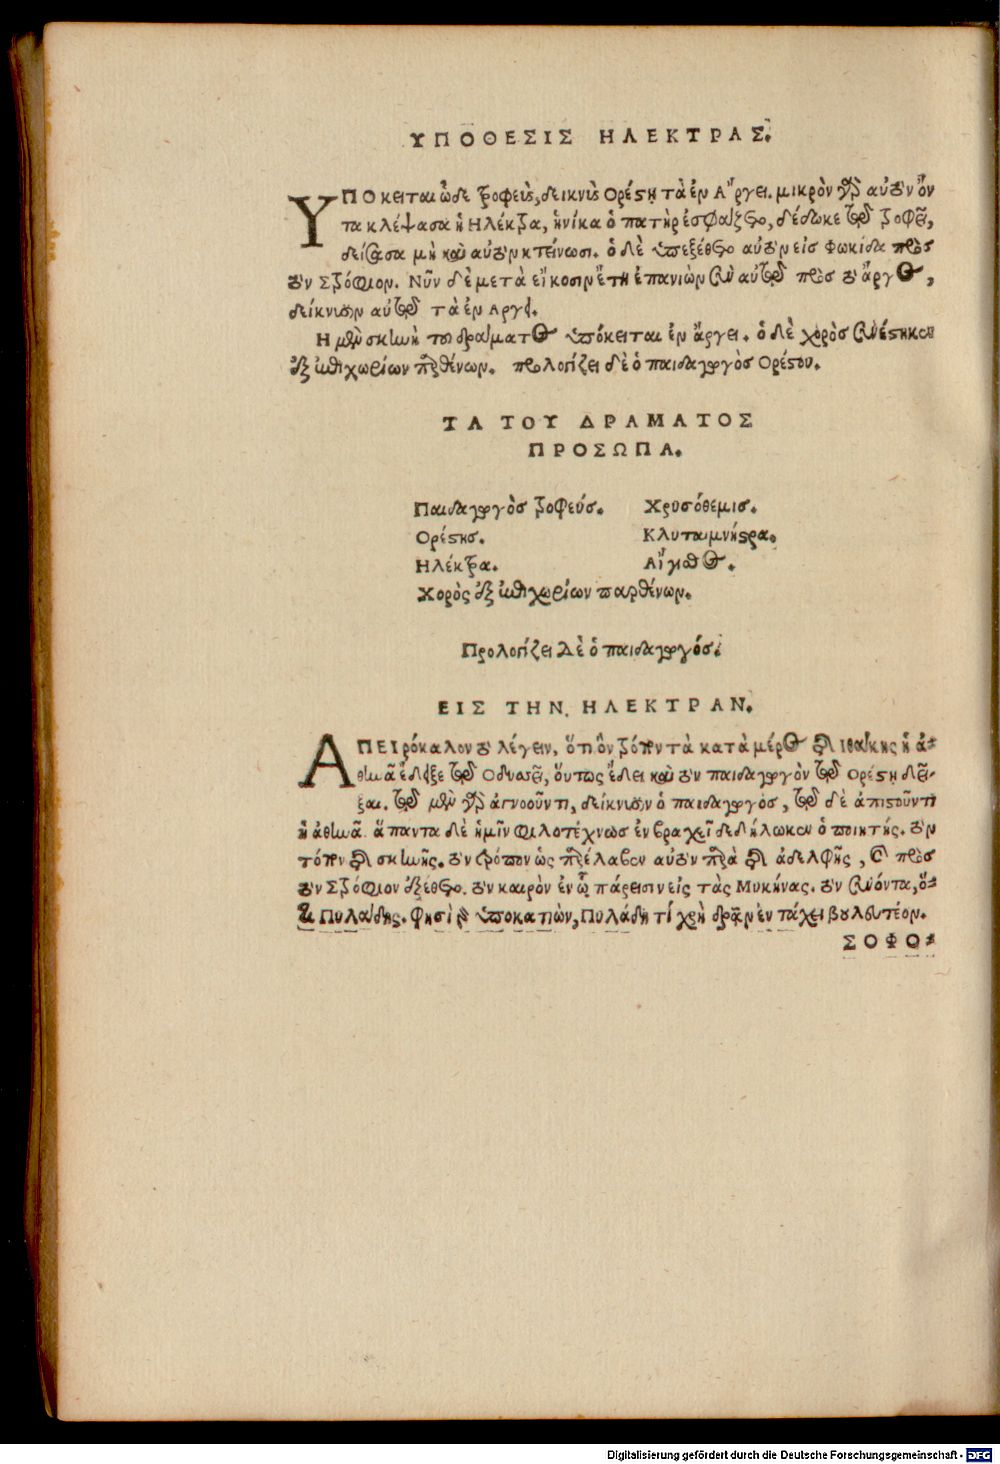 ΥΠΟΘΕΣΙΣ ΗΛΕΚΤΡΑΣ.
ΥΠΟκειται ὧδε τροφεὺς, δεικνὺς Ορέστῃ τὰ ἐν Αἴργει. μικρὸν γὰρ αὐτὸν ὄν
τα κλέψασα ἡ Ηλέκτρα, ἡνίκα ὁ πατὴρ ἐσφάζετο, δέδωκε τῷ τροφεῖ,
δείσασα μὴ καὶ αὐτὸν κτείνωσι. ὁ δὲ ὑπεξέθετο αὐτὸν εἰς Φωκίδα πρὸς
τὸν Στρόφιον. Νῦν δὲ μετὰ εἴκοσιν ἔτη ἐπανιὼν σὺν αὐτῷ πρὸς τὸ ἄργος,
δείκνυσιν αὐτῷ τὰ ἐν Αργει.
Η μὲν σκηνὴ του δράματος ὑπόκειται ἐν ἄργει. ὁ δὲ χορὸς συνέστηκεν
ἐξ ἐπιχωρίων παρθένων. προλογίζει δὲ ὁ παιδαγωγὸς Ορέστου.
ΤΑ ΤΟΥ ΔΡΑΜΑΤΟΣ
ΠΡΟΣΩΠΑ.
Παιδαγωγὸς τροφεύς. Χρυσόθεμις.
Ορέστης. Κλυταιμνήστρα.
Ηλέκτρα. Αἴγισθος.
Χορὸς ἐξ ἐπιχωρίων παρθένων.
Προλογίζει Δὲ ὁ παιδαγωγός.
ΕΙΣ ΤΗΝ ΗΛΕΚΤΡΑΝ.
ΑΠΕΙρόκαλον τὸ λέγειν, ὅτι ὃν τρόπον τὰ κατὰ μέρος τῆς Ιθάκης ἡ ἀ-
θηνᾶ ἔδειξε τῷ Οδυσσεῖ, ὅυτως ἔδει καὶ τὸν παιδαγωγὸν τῷ Ορέστῃ δεῖ-
ξαι. τῷ μὲν γὰρ ἀγνοοῦντι, δείκνυσιν ὁ παιδαγωγός, τῷ δὲ ἀπιστοῦντι
ἡ ἀθηνᾶ. ἅπαντα δὲ ἡμῖν φιλοτέχνως ἐν βραχεῖ δεδήλωκεν ὁ ποιητής. τὸν
τόπον τῆς σκηνῆς. τὸν τρόπον ὡς παρέλαβεν αὐτὸν παρὰ τῆς ἀδελφῆς, καὶ πρὸς
τὸν Στρόφιον ἐξέθετο. τὸν καιρὸν ἐν ᾧ πάρεισιν εἰς τὰς Μυκήνας. τὸν συνόντα, ὅ-
τι Πυλάδης. Φησὶ γὰρ ὑποκατιὼν, Πυλάδη τί χρὴ δρᾶν ἐν τάχει βουλευτέον.
ΣΟΦΟ-
Digitalisierung gefördert durch die Deutsche Forschungsgemeinschaft - DFG